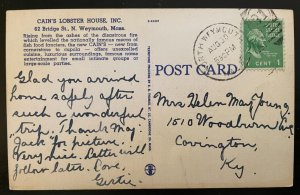 CAIN'S LOBSTER HOUSE, INC.
62 Bridge St., N. Weymouth, Mass.
Rising from the ashes of the disastrous fire
which levelled the nationally famous mecca of
fish food fanciers, the new CAIN'S — new from
cornerstone to capola — offers unsurpassed
cuisine, smart surroundings, famous name
entertainment for small intimate groups or
large-scale parties.
Glad you arrived
home safely after
such a wonderful
trip. Thank May
Jack for picture.
Very nice. Letter will
follow later. Love,
Gertie
NORTH WEYMOUTH
AUG
5 30 PM
POST CARD
1 CENT 1
Mrs Helen May Young
1510 Woodburn
Covington,
Ky.